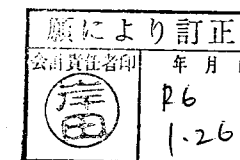 願により訂正
会計責任者印 年月
岸田 R6
1.26